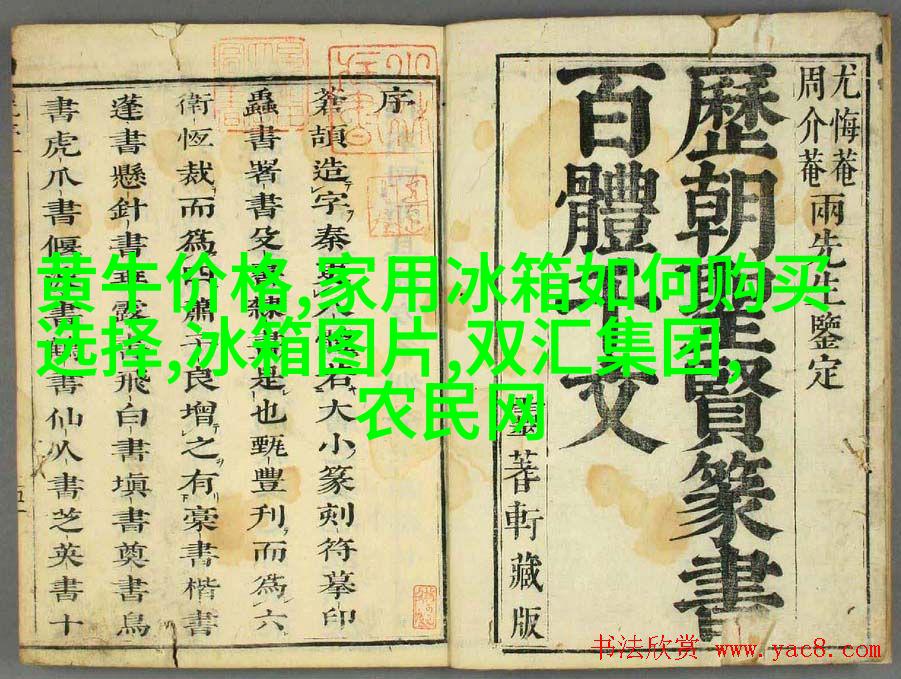 尤悔菴
周介菴
兩先生鑒定
歷朝聖賢篆書
百體千文
軒藏版
序
蒼頡造字秦大小篆刻符摹印
蟲書署書殳書隸書是也甄豐刋而爲六
衛恆裁而爲四蕭子良增之有藁書楷書
蓬書懸針書垂露書飛白書填書奠書鳥
書虎爪書偃波書鶴書仙人書芝英書十
黄牛价格,家用冰箱如何购买
选择,冰箱图片,双汇集团,
农民网
书法欣赏 www.yac8.com